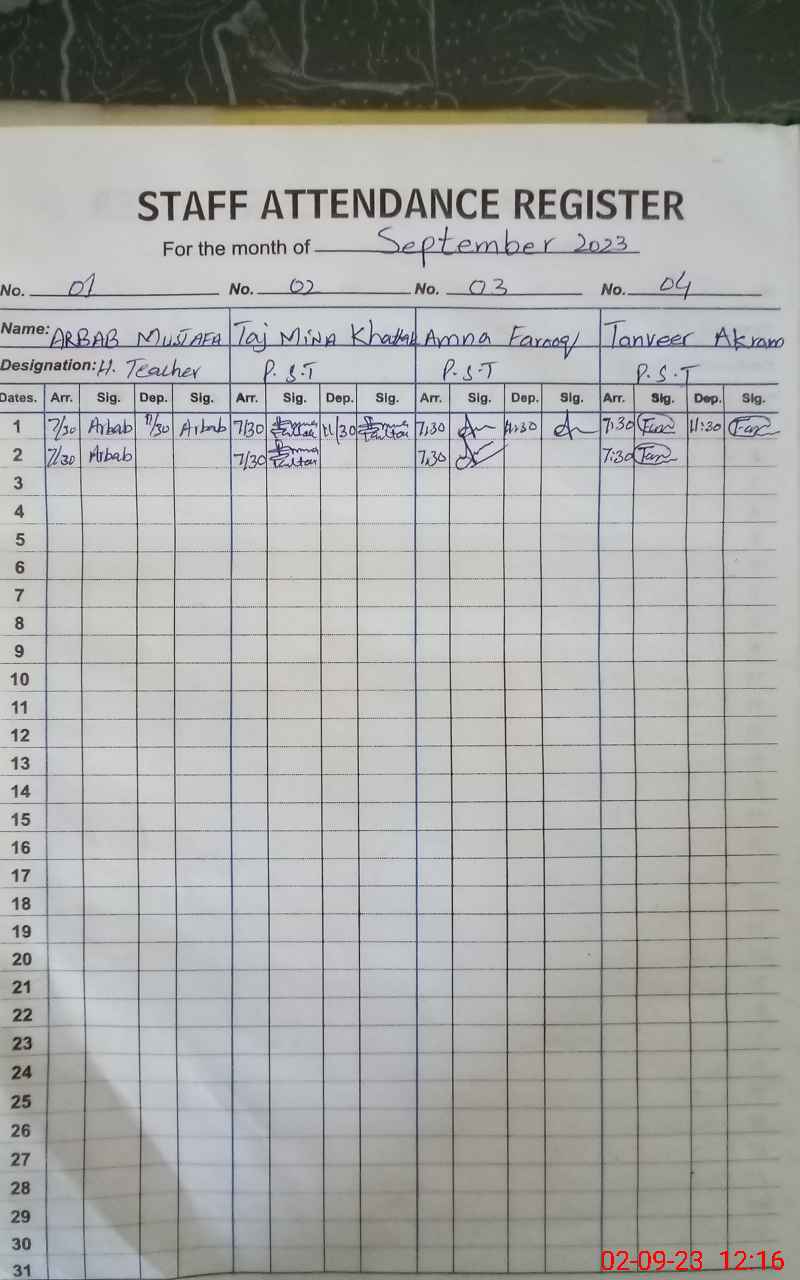 STAFF ATTENDANCE REGISTER
For the month of September 2023
No. 01 No. 02 No. 03 No. 04
Name: ARBAB MUSTAFA Taj MINA Khattak Amna Farooq Tanveer Akram
Designation: H. Teacher P.S.T P.S.T P.S.T
Dates. Arr. Sig. Dep. Sig. Arr. Sig. Dep. Sig. Arr. Sig. Dep. Sig. Arr. Sig. Dep. Sig.
1 7/30 Arbab 11/30 Arbab 7/30 11/30 7:30 11:30 7:30 Tan 11:30 Tan
2 7/30 Arbab 7/30 7:30 7:30 Tan
3
4
5
6
7
8
9
10
11
12
13
14
15
16
17
18
19
20
21
22
23
24
25
26
27
28
29
30
31
02-09-23 12:16